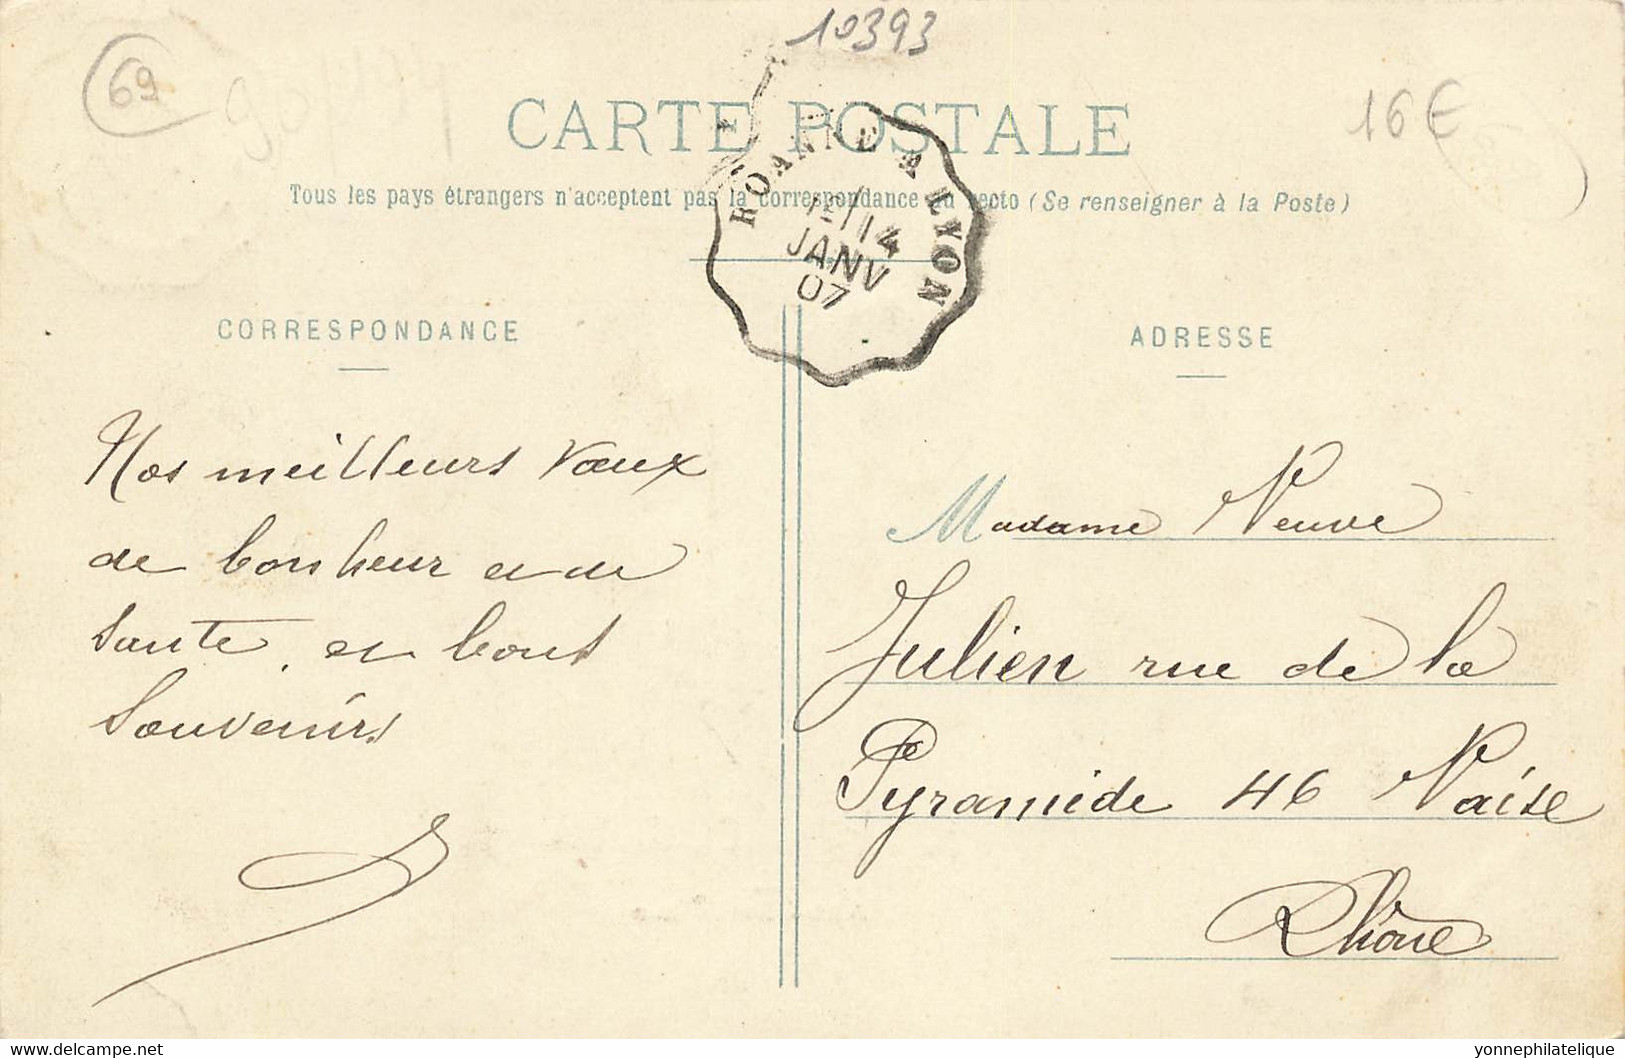 10393
69
16€
CARTE POSTALE
Tous les pays étrangers n'acceptent pas la correspondance au recto (Se renseigner à la Poste)
ROANNE A LYON
14
JANV
07
CORRESPONDANCE
ADRESSE
Nos meilleurs vœux
de bonheur et de
Sante, et bons
Souvenirs
Madame Veuve
Julien rue de la
Pyramide 46 Vaise
Rhône
delcampe.net
yonnephilatelique